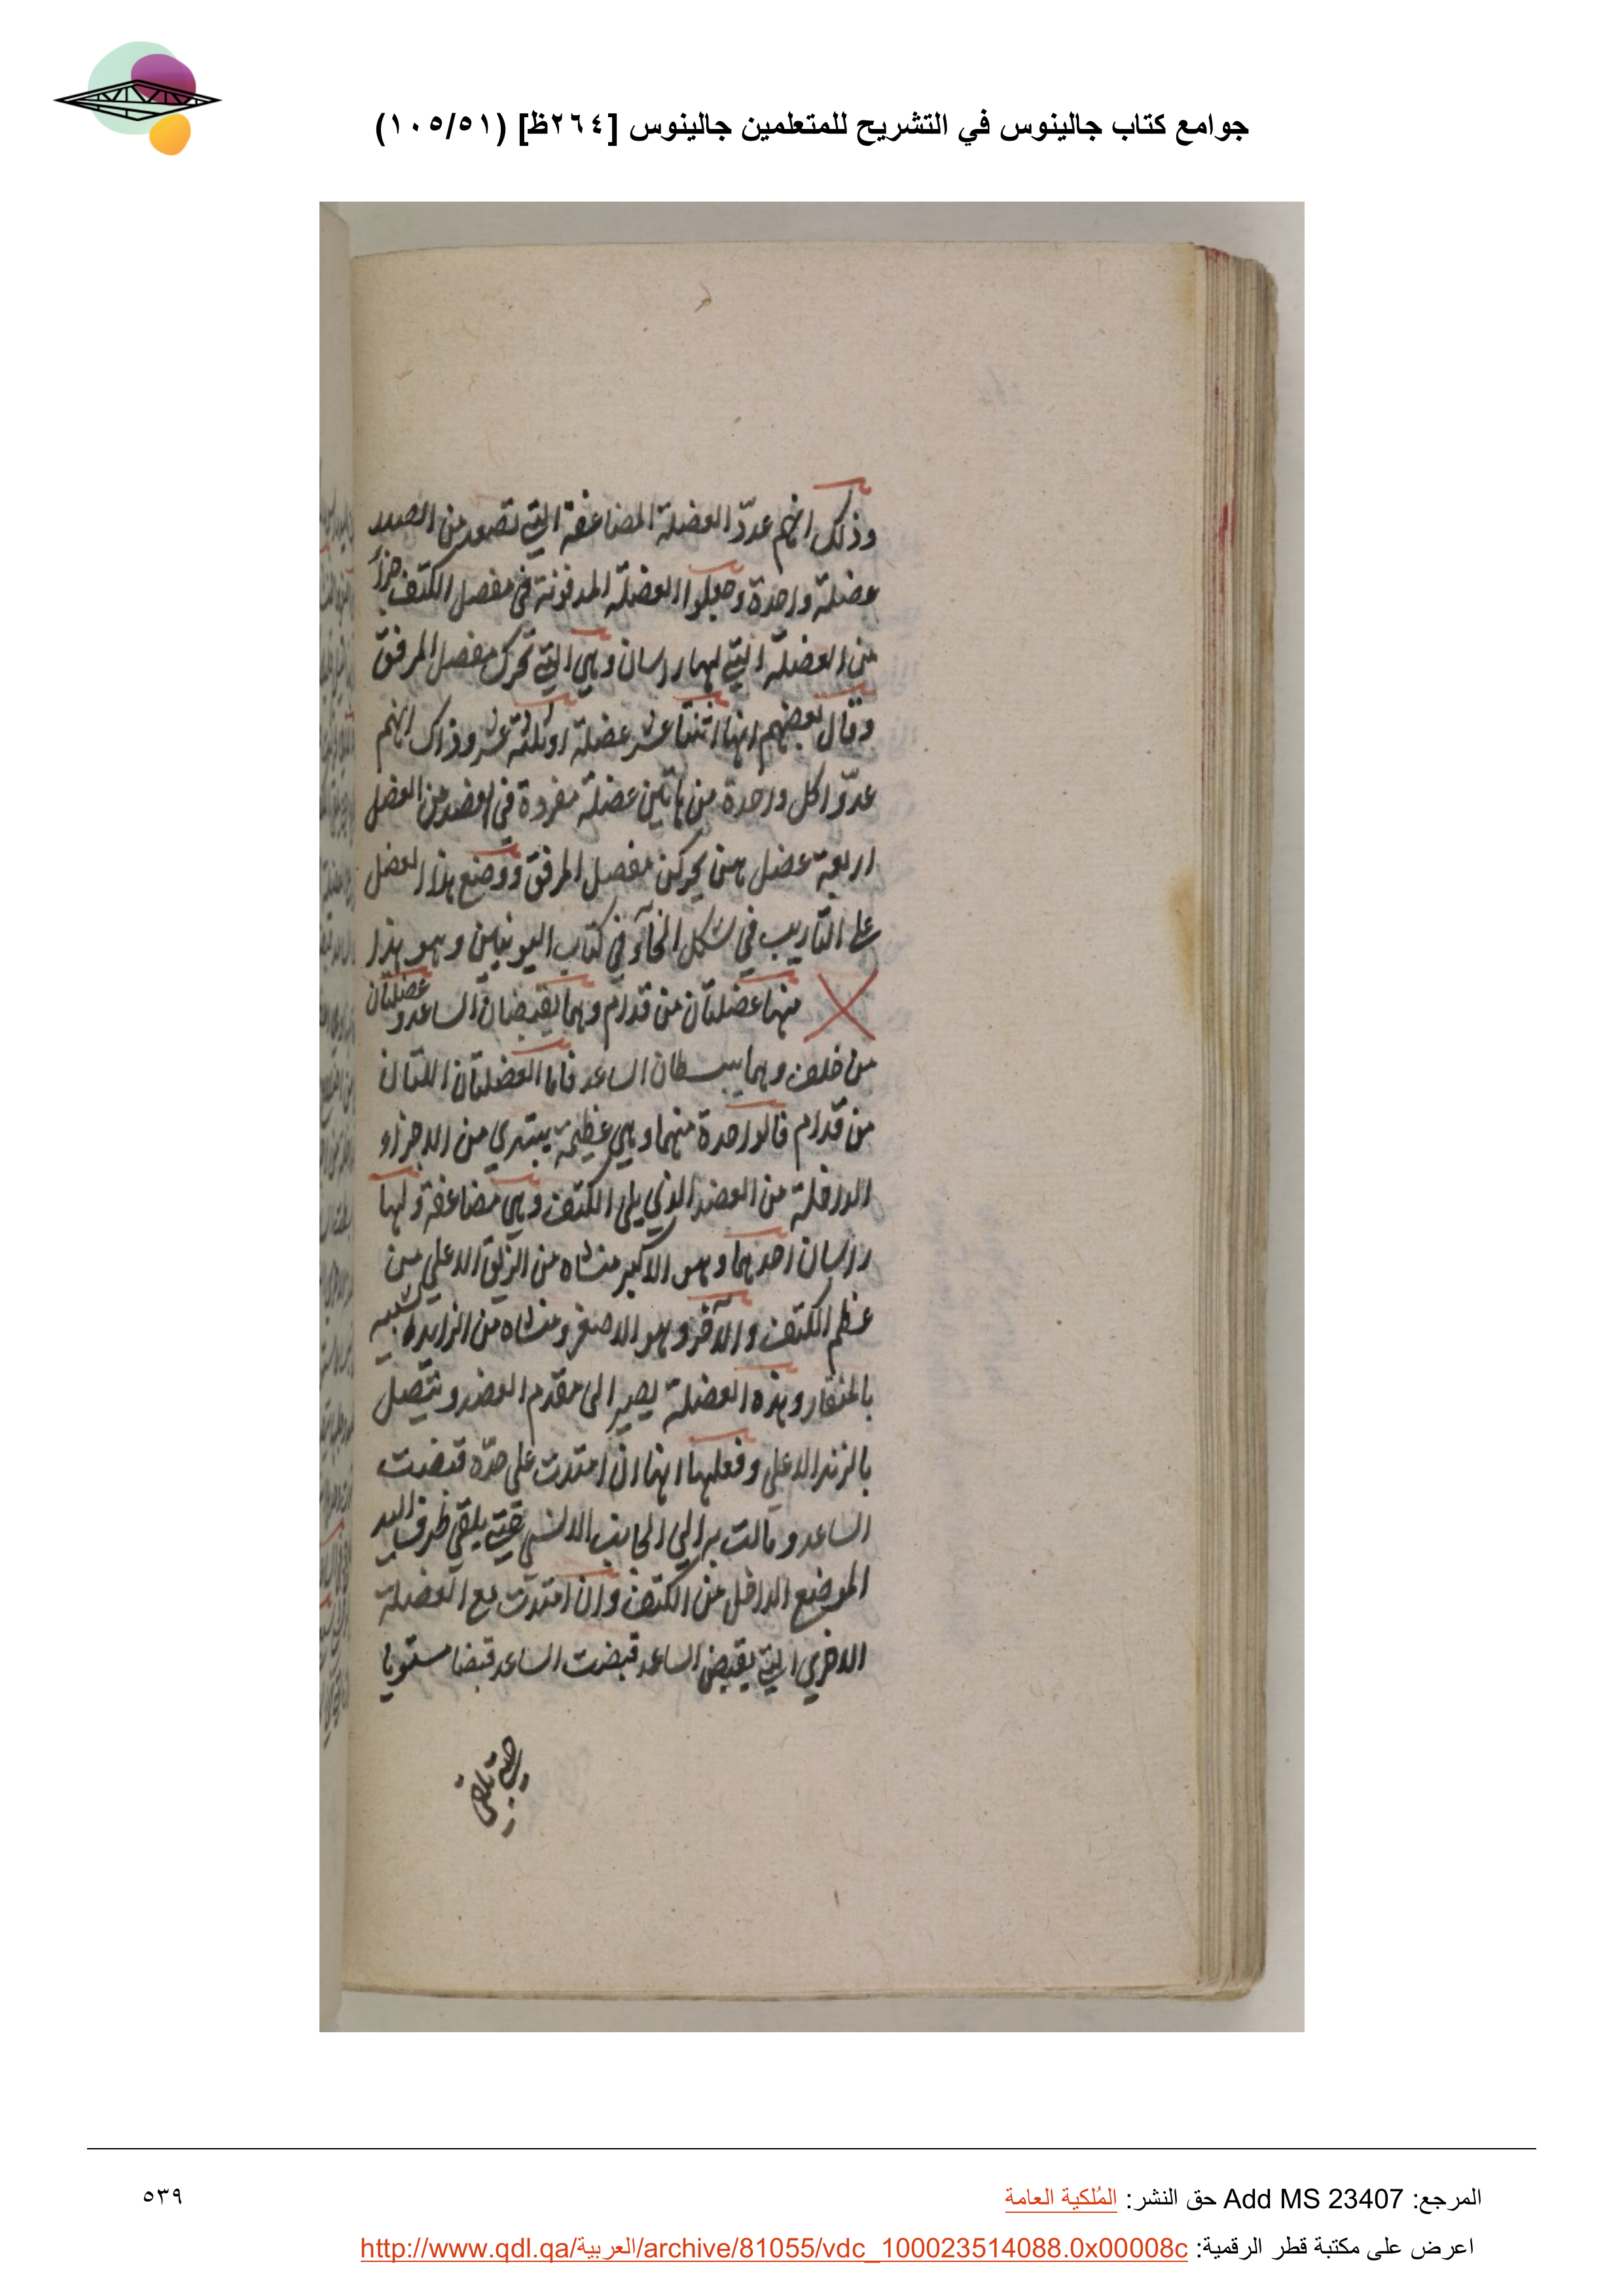 جوامع كتاب جالينوس في التشريح للمتعلمين جالينوس [٢٦٤ظ] (١٠٥/٥١)
وذلك انهم عدّدّ العضلة المضاعفة التي تصعد من الصدر
عضلة واحدة وجعلوا العضلة المدفونة في مفصل الكتف جزأ
من العضلة التي لها راسان وهي التي تحرك مفصل المرفق
وقال بعضهم انها اثنتا عشر عضلة او ثلثة عشر وذاك انهم
عدّوا كل واحدة من هاتين عضلة مفردة في العضد من العضل
اربعة عضل هن يحركن مفصل المرفق ووضع هذا العضل
على التاريب في شكل الخآء في كتاب اليونيين وهو هذا
منها عضلتان من قدام وهما يقبضان الساعد وعضلتان
من خلف وهما يبسطان الساعد فاما العضلتان اللتان
من قدام فالواحدة منهما وهي عظيمة يبتدي من الاجزاء
الداخلة من العضد الذي يلي الكتف وهي مضاعفة ولها
راسان احدهما وهو الاكبر منشاه من الزيق الاعلى من
عظم الكتف والآخر وهو الاصغر ومنشاه من الزايدة شبيه
بالمنقار وهذه العضلة يصير الى مقدم العضد ويتصل
بالزند الاعلى وفعلها انها ان امتدت على حدّه قبضت
الساعد ومالت به الى الجانب الانسي حتى يلقى طرف اليد
الموضع الداخل من الكتف وان امتدت مع العضلة
الاخري التي يقبض الساعد قبضت الساعد قبضا مستويا
المرجع: Add MS 23407 حق النشر: المُلكية العامة
٥٣٩
اعرض على مكتبة قطر الرقمية: http://www.qdl.qa/العربية/archive/81055/vdc_100023514088.0x00008c